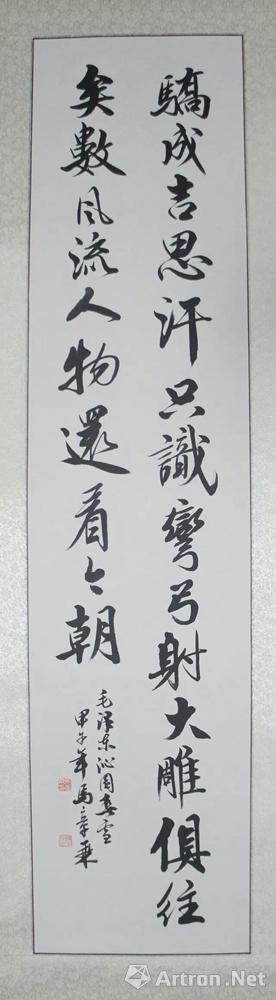 驕成吉思汗只識彎弓射大雕俱往
矣數風流人物還看今朝
毛澤东沁園春雪
甲午年馬章乘
Artron.Net